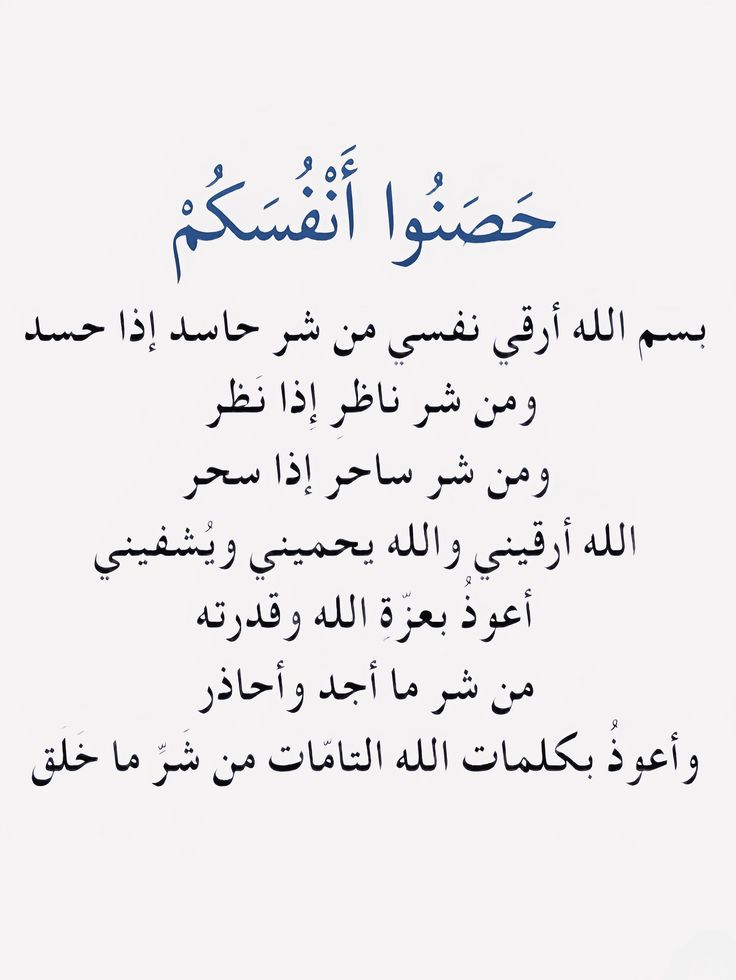 حَصَنُوا أَنْفُسَكُمْ
بسم الله أرقي نفسي من شر حاسد إذا حسد
ومن شر ناظرِ إِذا نَظر
ومن شر ساحر إذا سحر
الله أرقيني والله يحميني ويُشفيني
أعوذُ بعزّةِ الله وقدرته
من شر ما أجد وأحاذر
وأعوذُ بكلمات الله التامّات من شَرِّ ما خَلَق